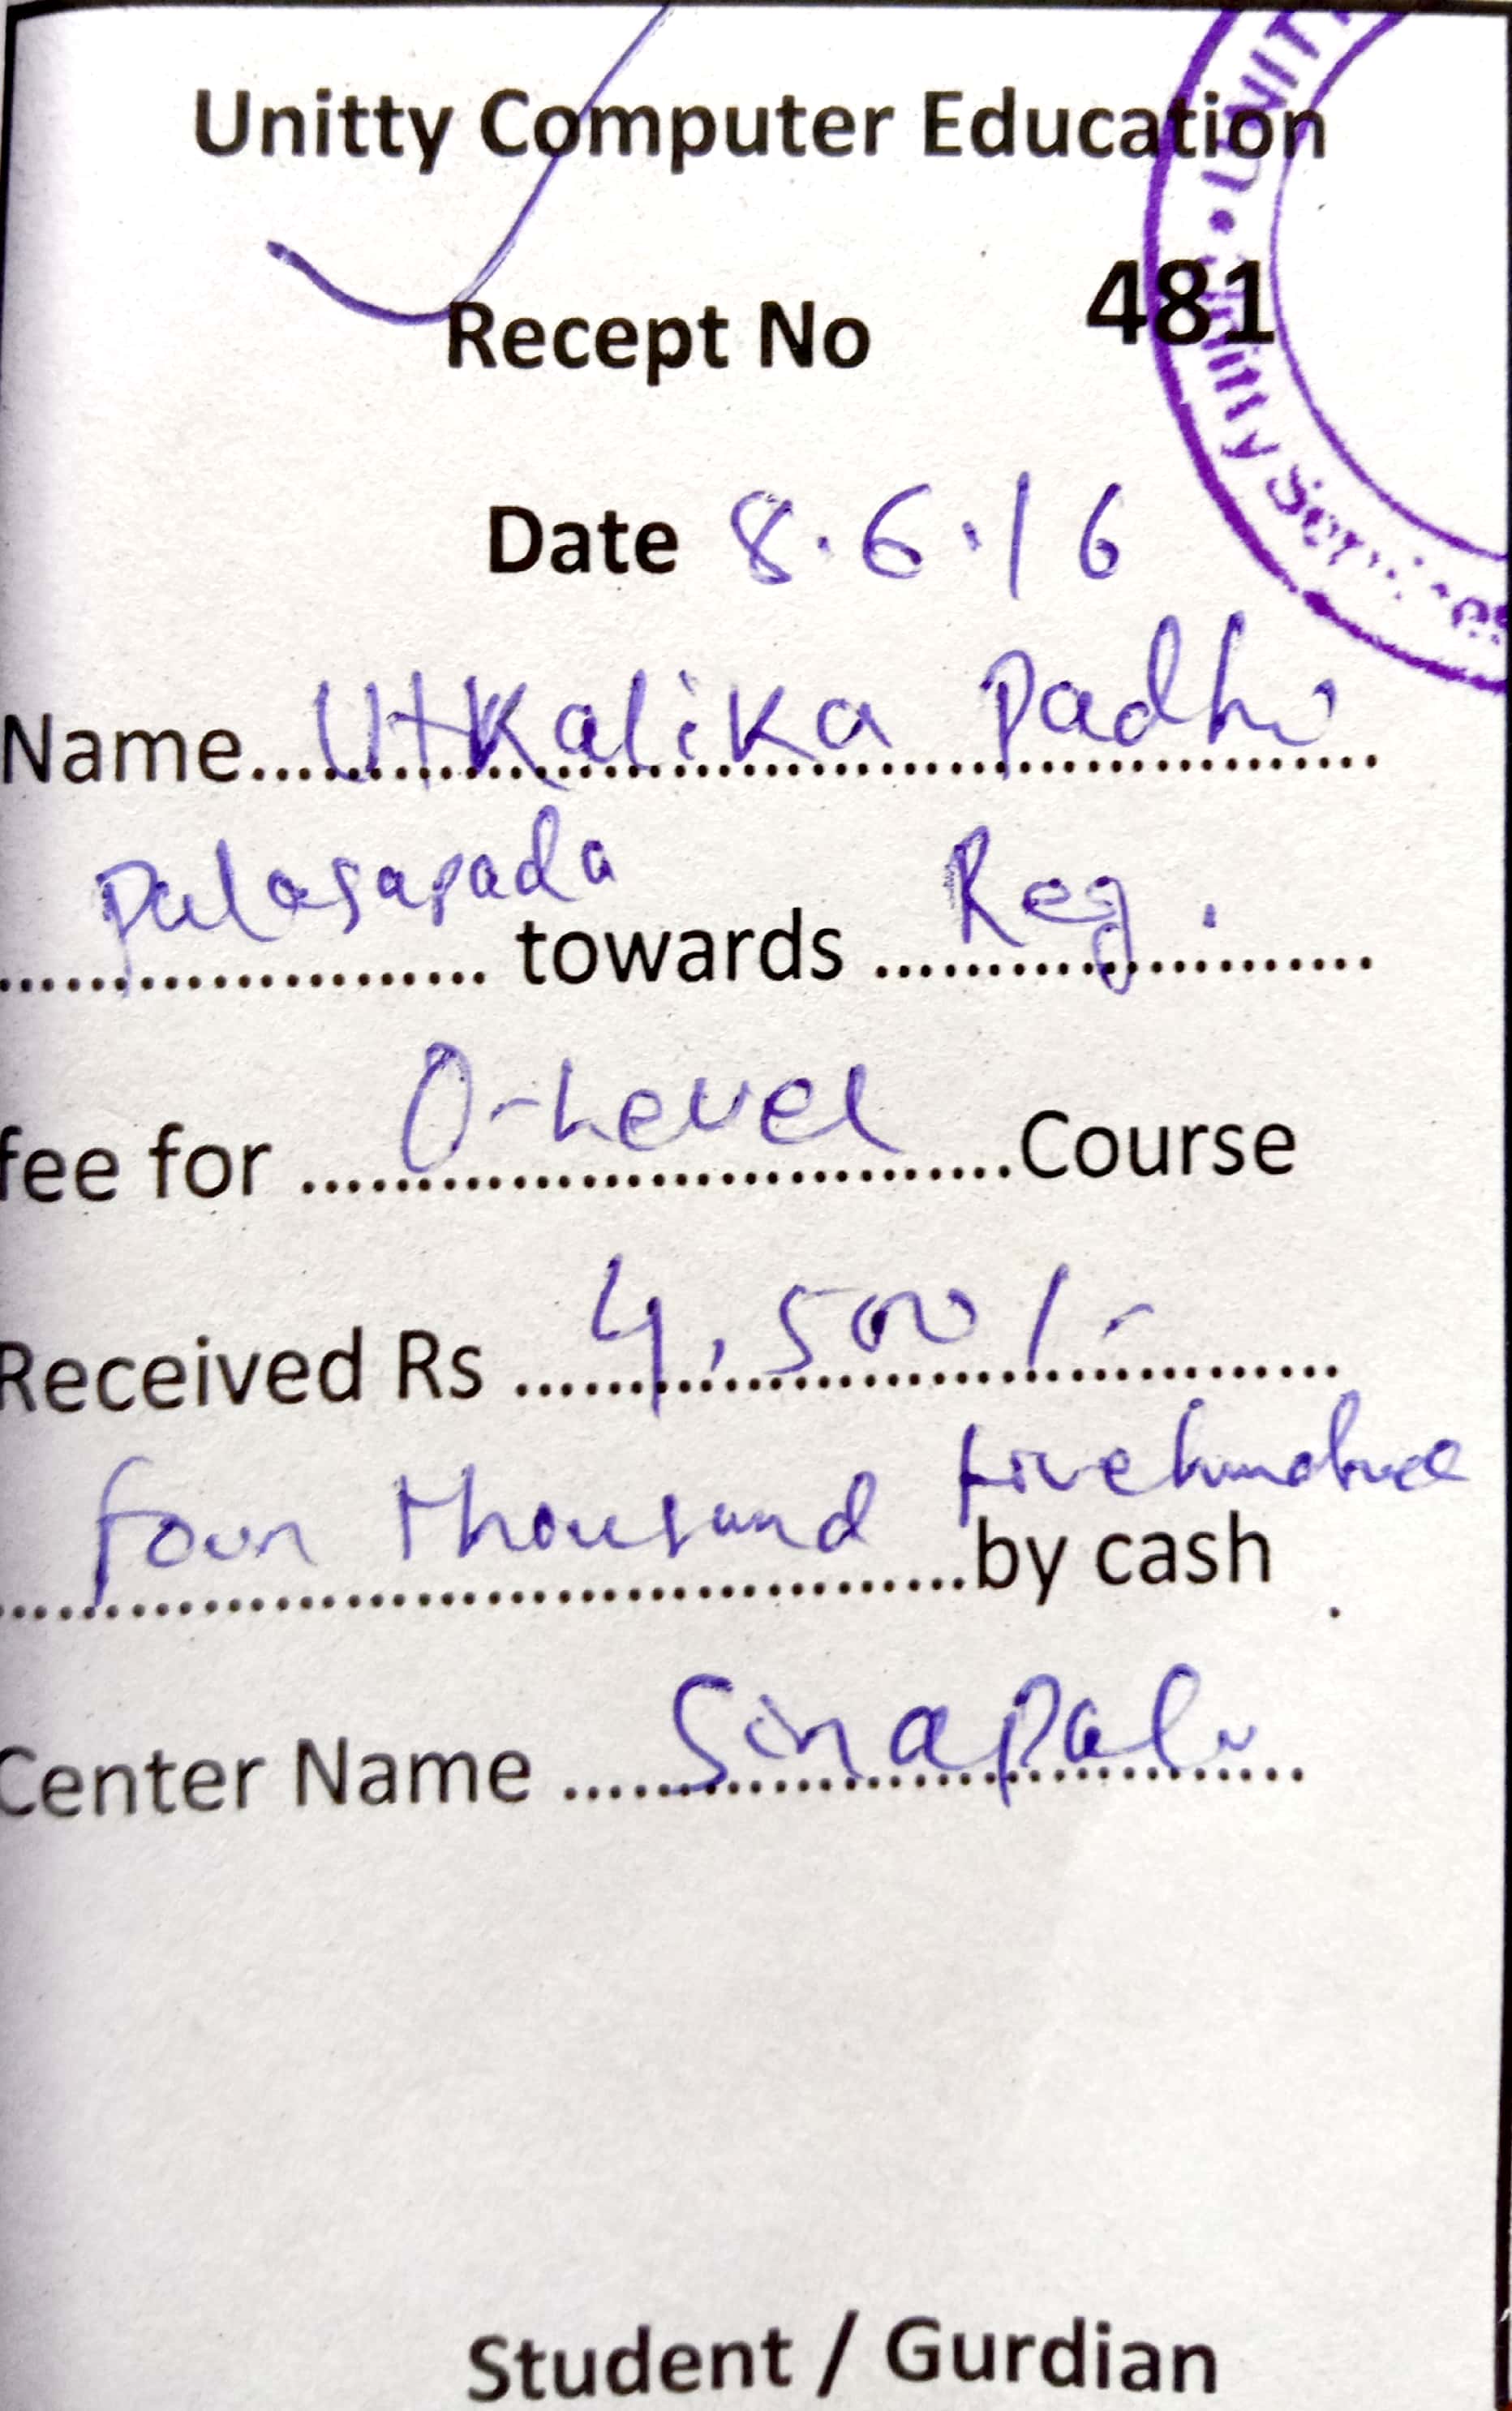 Unitty Computer Education
Recept No 481
Date 8.6.16
Name.... Utkalika Padhi
Palasapada towards Reg.
fee for O-Level Course
Received Rs 4,500/-
four thousand five hundred by cash
Center Name Sinapali
Student / Gurdian